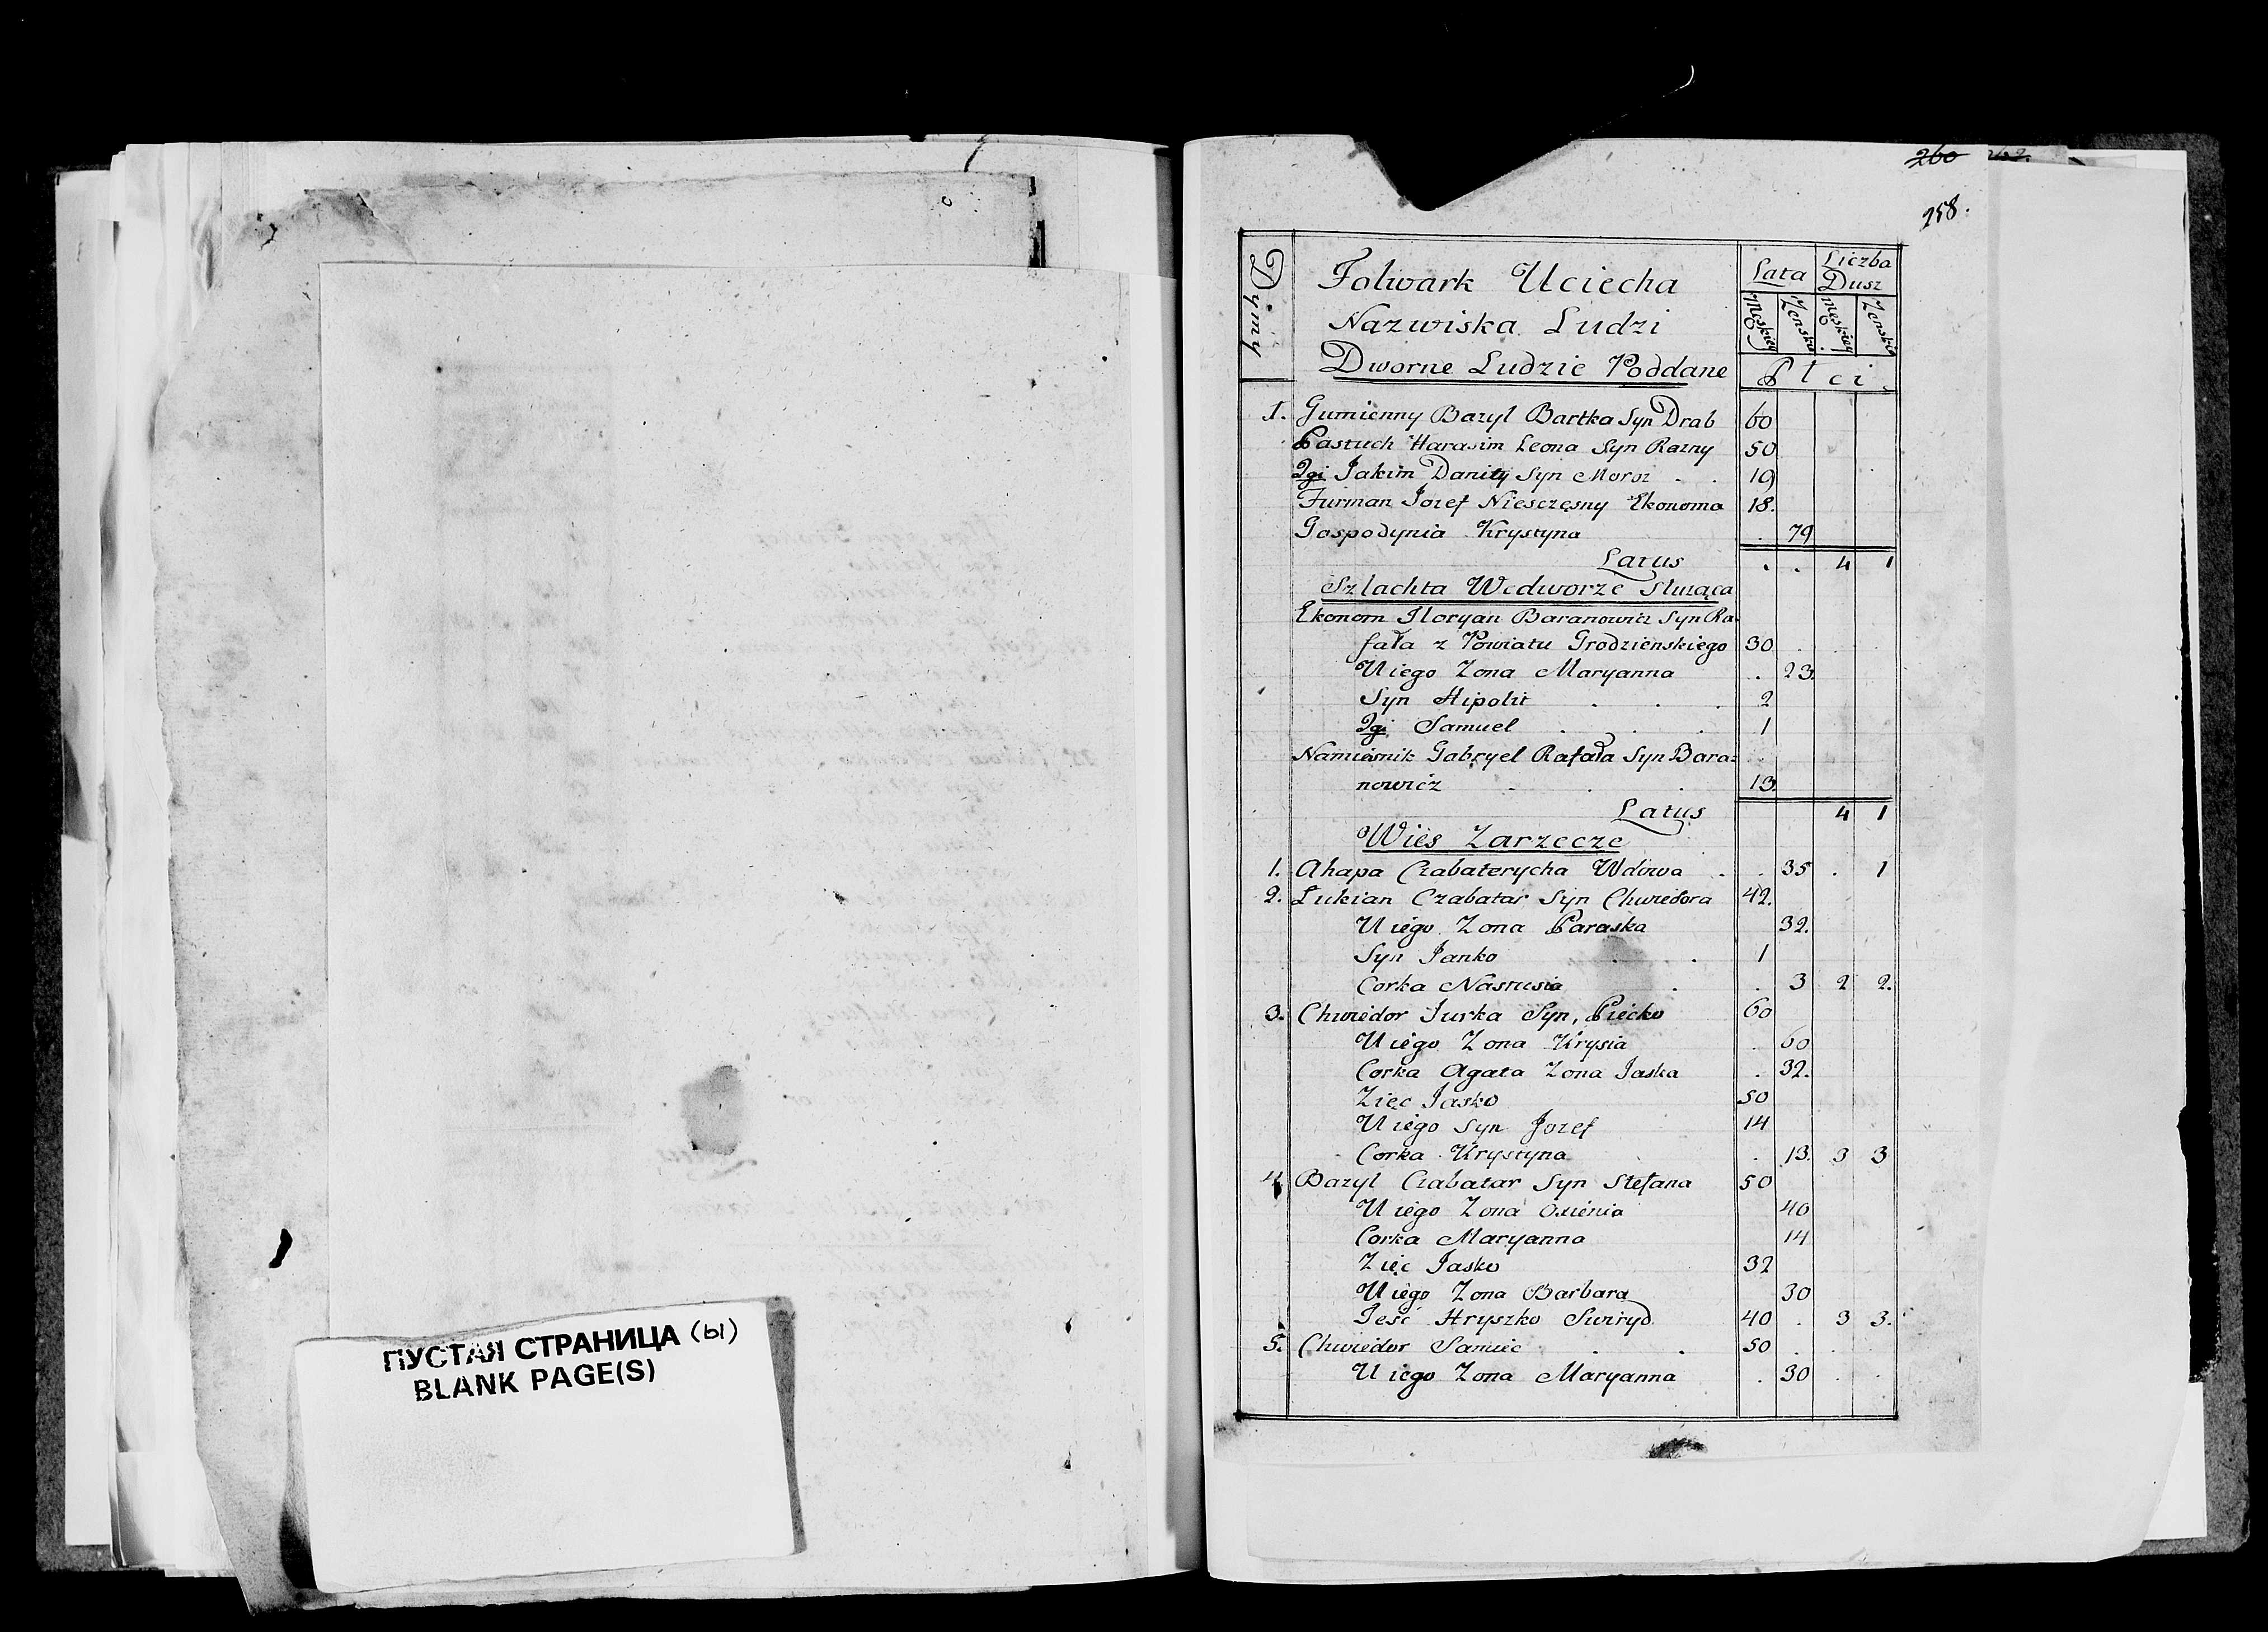 ПУСТАЯ СТРАНИЦА (ы)
BLANK PAGE(S)
260 262.
258.
Dymy
Folwark Uciecha
Nazwiska Ludzi
Dworne Ludzie Poddane
Lata
Liczba Dusz
Męskiey Zenskie męskiey Zenskie
Płci
1. Gumienny Bazyl Bartka Syn Drab 60
Pastuch Harasim Leona Syn Razny 50
2gi Jakim Daniły Syn Moroz . . 19
Furman Jozef Niesczęsny Ekonoma 18.
Gospodynia Krystyna . 79
Latus . . 4 1
Szlachta Wedworze Służąca
Ekonom Floryan Baranowicz Syn Ra-
fała z Powiatu Grodzienskiego 30 . . .
Uiego Zona Maryanna . 23.
Syn Hipolit . . . 2
2gi Samuel . . . 1
Namiesnik Gabryel Rafała Syn Bara-
nowicz . . . 13.
Latus 4 1
Wies Zarzecze
1. Ahapa Czabaterycha Wdowa . . 35 . 1
2. Łukian Czabatar Syn Chwiedora 42.
Uiego Zona Paraska 32.
Syn Janko . . 1
Corka Nastusia . . 3 2 2.
3. Chwiedor Jurka Syn, Piecko 60
Uiego Zona Krysia . 60
Corka Agata Zona Jaska . 32.
Zięc Jasko 50
Uiego Syn Jozef 14
Corka Krystyna . 13. 3 3
4 Bazyl Czabatar Syn Stefana 50
Uiego Zona Oxienia 40
Corka Maryanna 14
Zięc Jasko 32
Uiego Zona Barbara 30
Teść Hryszko Swiryd 40 . 3 3.
5. Chwiedor Samiec . . 50 . . .
Uiego Zona Maryanna . 30 . .